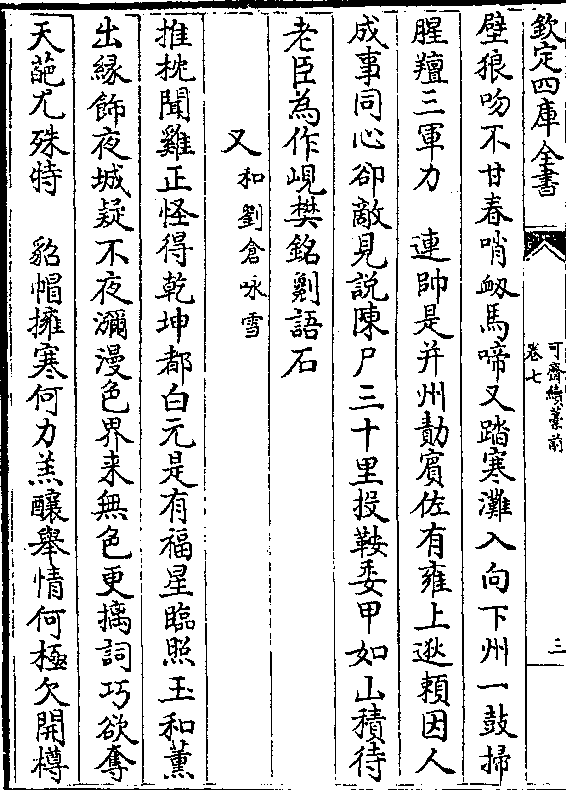 欽定四庫全書
可齋續藁前
卷七
三
壁狼吻不甘春哨衂馬啼又踏寒灘入向下州一鼓掃
腥羶三軍力　連帥是并州勣賓佐有雍上逖頼因人
成事同心卻敵見說陳尸三十里投鞍委甲如山積待
老臣為作峴樊銘劖語石
又和劉倉咏雪
推枕聞雞正怪得乾坤都白元是有福星臨照玉和薫
出緣飾夜城疑不夜瀰漫色界来無色更摛詞巧欲奪
天葩尤殊特　貂帽擁寒何力羔釀舉情何極欠開樽